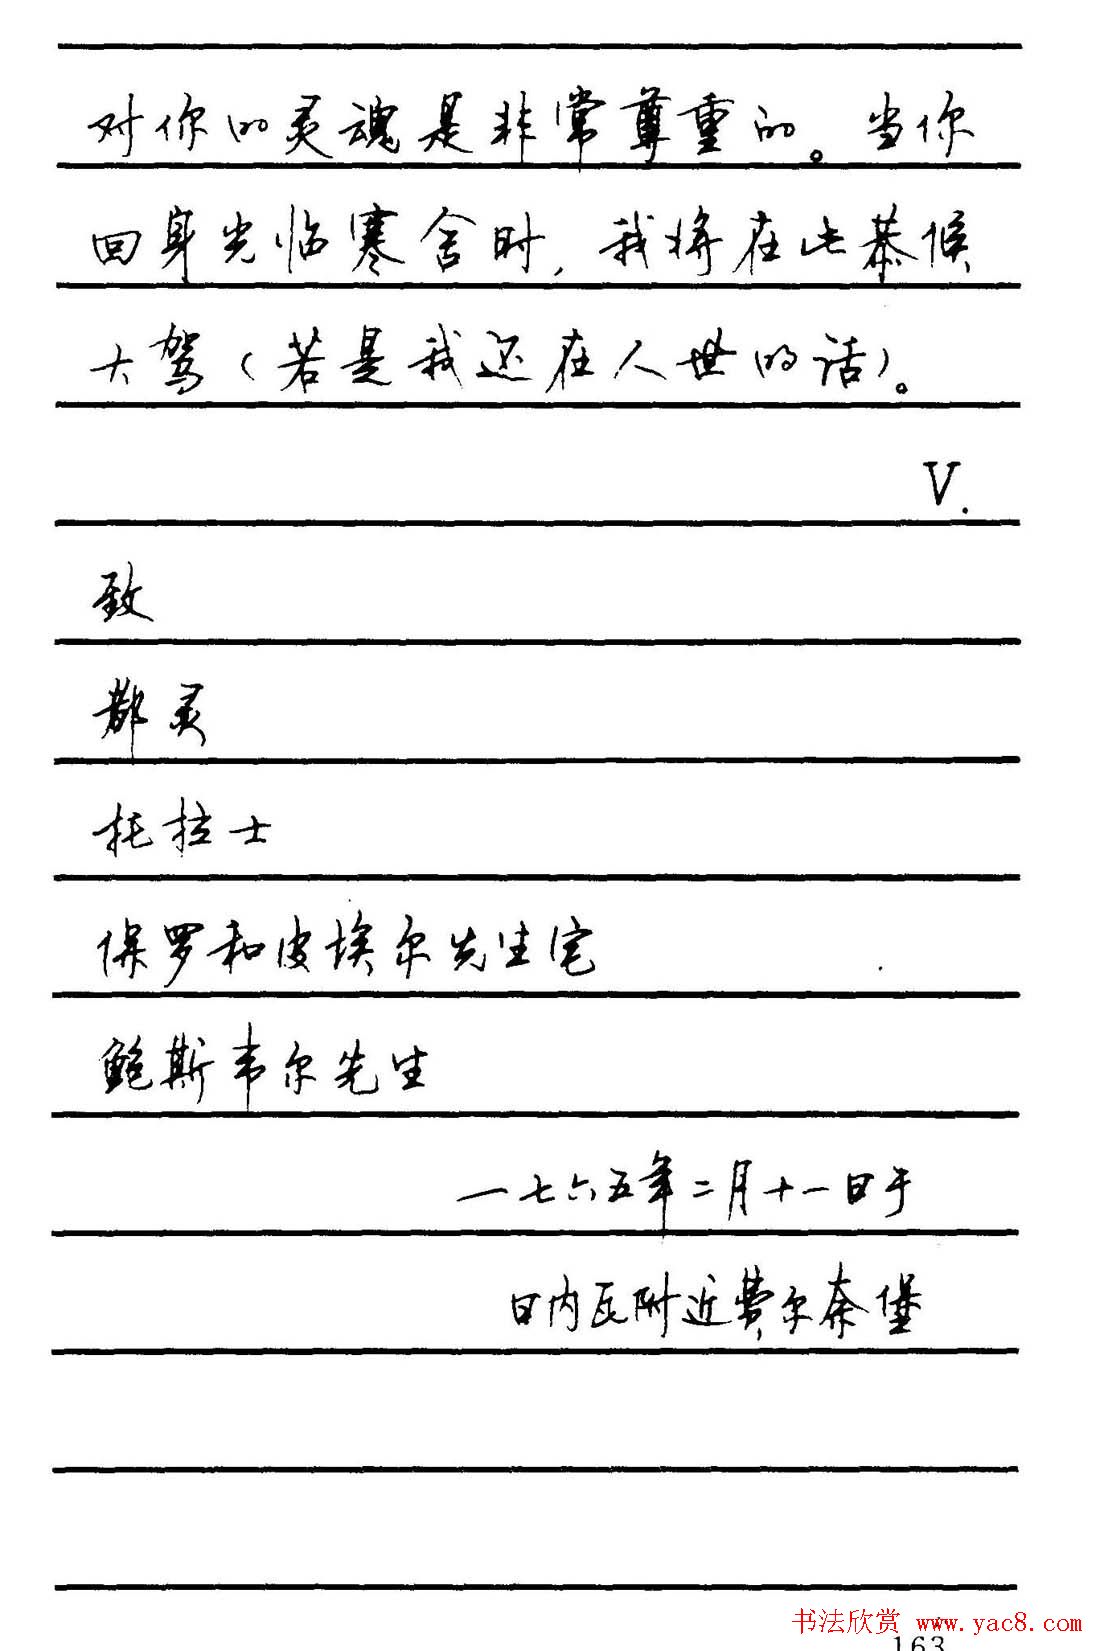 对你的灵魂是非常尊重的。当你
回身光临寒舍时,我将在此恭候
大驾(若是我还在人世的话)。
V.
致
都灵
托拉士
保罗和皮埃尔先生宅
鲍斯韦尔先生
一七六五年二月十一日于
日内瓦附近费尔奈堡
书法欣赏 www.yac8.com
163